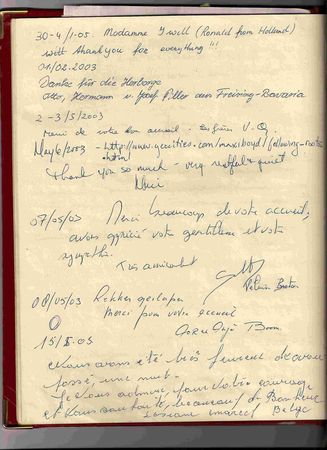 30-4/1-05. Modamme I will (Ronald from Holland)
will thank you for everything!!!
01/02.2003
Danke für die Herberge
Otto, Hermann u Josef Piller aus Freising-Bavaria
2-3/5/2003
Merci de votre bon accueil - V. Q.
May 6/2003 - http://www.geocities.com/maxiboyd/following-
.html
Thank you so much - very restful & quiet
Merci
07/05/03 Merci beaucoup de votre accueil,
avons apprécié votre gentillesse et votre
sympathie.
Très amicalement
08/05/03 Lekker geslapen
Merci pour votre accueil
15/5-03
Nous avons été bien heureux d'avoir
passé, une nuit.
Je vous admire, pour votre courage
et vous souhaite, beaucoup de Bonheur
Marcel Belge